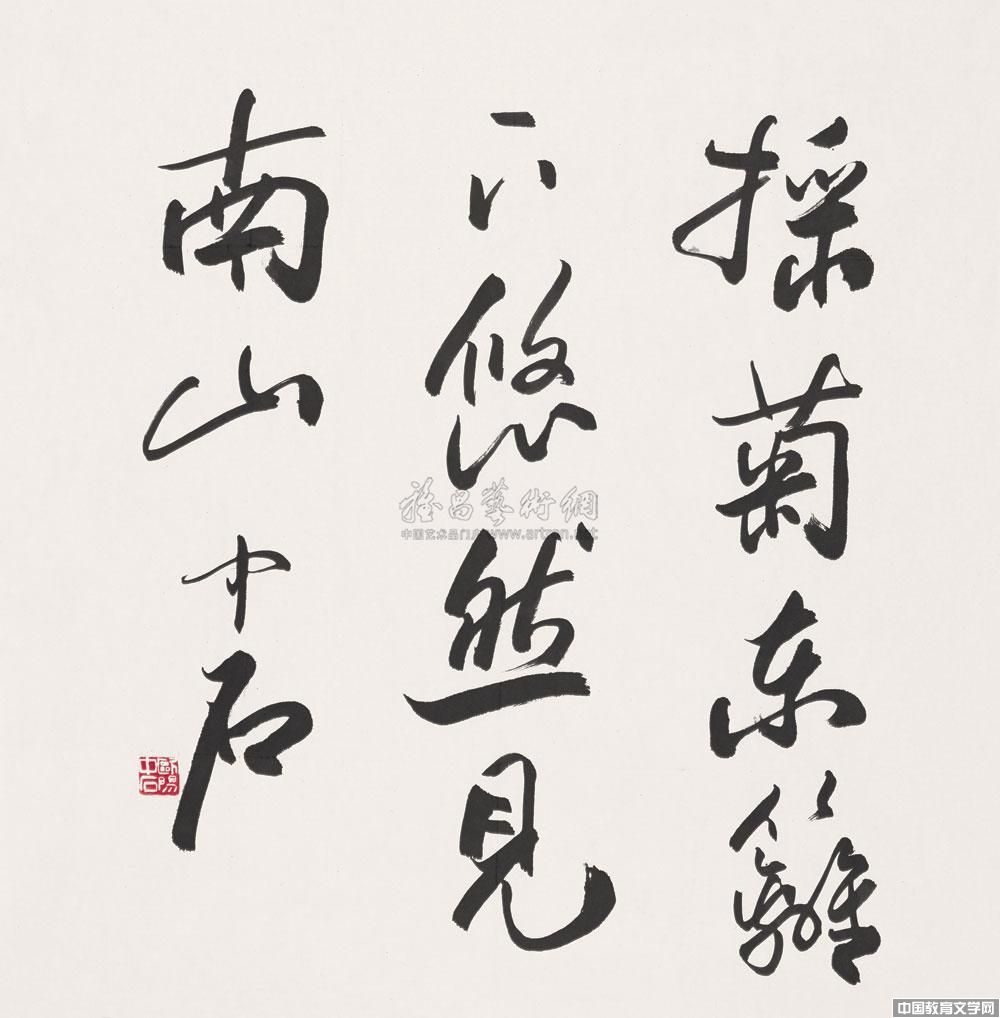 採菊东籬
下悠然見
南山 中石
歐陽中石
雅昌藝術網
中国艺术品门户www.artron.net
中国教育文学网